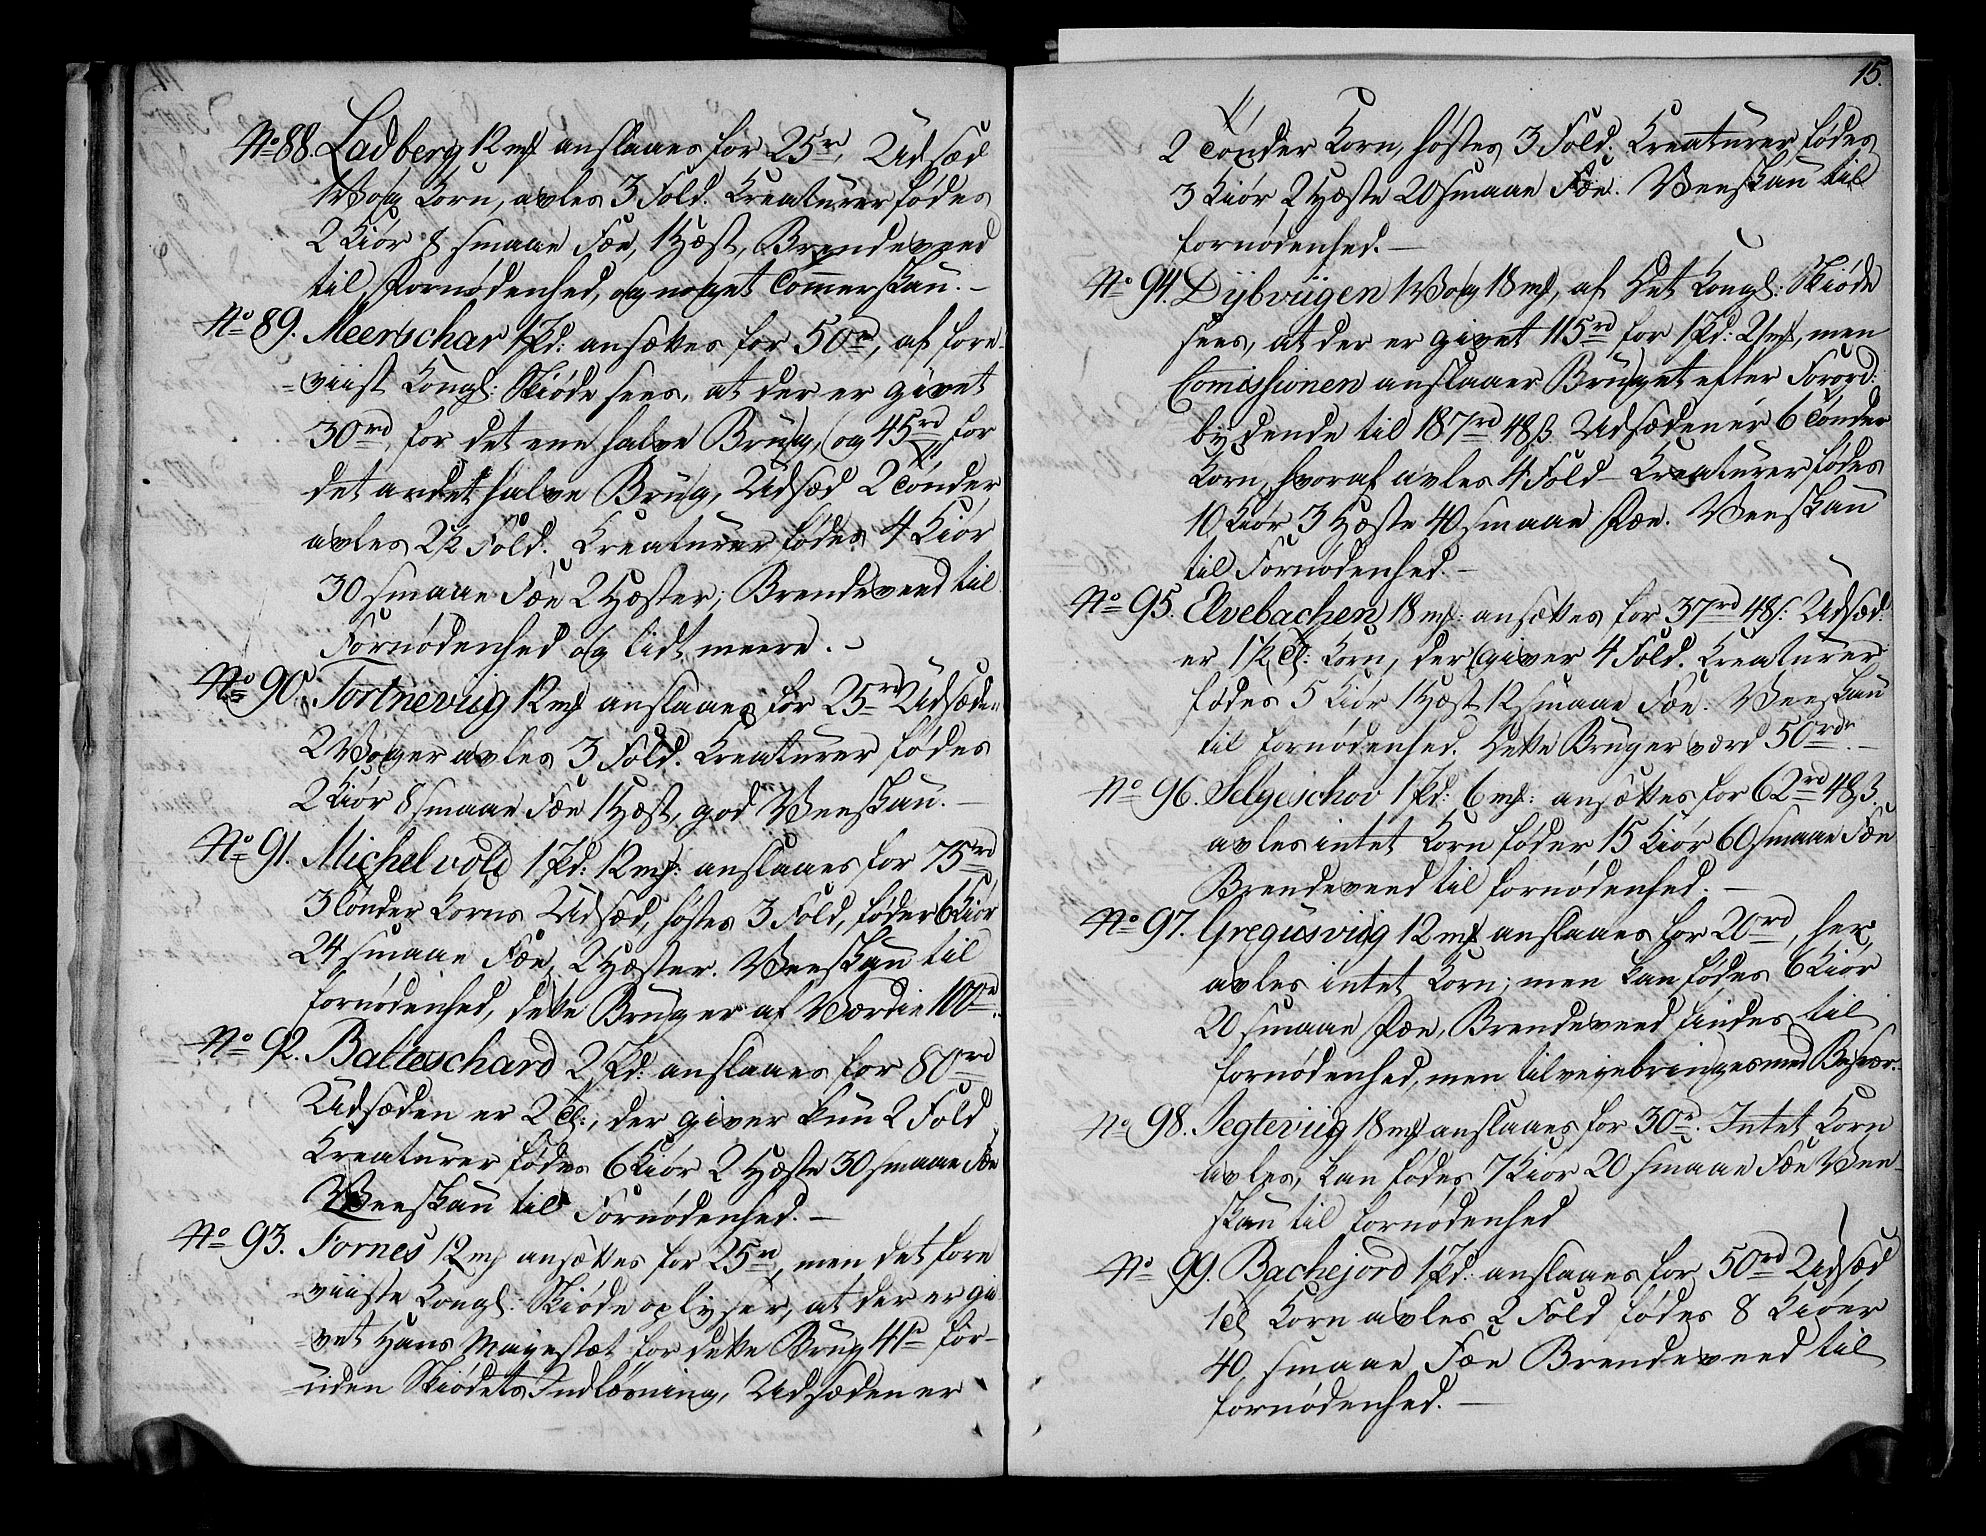 No 88. Ladberg 12 mk anslaaes for 25rd, Udsæd
1 Vog Korn, avles 3 Fold. Kreaturer födes
2 Kiör 8 smaae Fæe, 1 Hæst, Brendeveed
til Fornödenhed, og noget Tömmerskau. –
No 89. Meerschar 1 Pd: ansættes for 50rd, af fore-
-viist Kongl: Skiöde sees, at der er givet
30rd for det ene halve Brug, og 45rd for
det andet halve Brug, Udsæd 2 Tönder
avles 2½ Fold. Kreaturer födes 4 Kiör
30 smaae Fæe 2 Hæster; Brendeveed til
Fornödenhed og lidt meere.
No 90. Tortneviig 12 mk anslaaes for 25rd Udsæden
2 Voger avles 3 Fold. Kreaturer födes
2 Kiör 8 smaae Fæe 1 Hæst, god Veeskau. –
No 91. Michelvold 1 Pd: 12 mk: anslaaes for 75rd
3 Tönder Korns Udsæd, höstes 3 Fold, föder 6 Kiör
24 smaae Fæe, 2 Hæster. Veeskau til
fornödenhed, dette Brug er af Værdie 100rd.
No 92. Balteschard 2 Pd: anslaaes for 80rd
Udsæden er 2 Td:, der giver kun 2 Fold
Kreaturer födes 6 Kiör 2 Hæste 30 smaae Fæe
Veeskau til Fornödenhed. –
No 93. Fornes 12 mk ansættes for 25rd, men det fore
-viiste Kongl: Skiöde oplyser, at der er gi
-vet Hans Mayestæt for dette Brug 41rd for-
-uden Skiödets Indlösning, Udsæden er
15.
2 Tönder Korn, höstes 3 Fold. Kreaturer födes
3 Kiör 2 Hæste 20 smaae Fæe. Veeskau til
fornödenhed. –
No 94. Dybviigen 1 Vog 18 mk, af det Kongl: Skiöde
sees, at der er givet 115rd for 1 Pd: 21 mk, men
Comissionen anslaaer Bruget efter Forord:
bydende til 187rd 48ß. Udsæden er 6 Tönder
Korn, hvoraf avles 4 Fold – Kreaturer födes
10 Kiör 3 Hæste 40 smaae Fæe. Veeskau
til Fornödenhed. –
No 95. Elvebachen 18 mk: ansættes for 37rd 48ß: Udsæd:
er 1½ Td: Korn, der giver 4 Fold. Kreaturer
födes 5 Kiör 1 Hæst 12 smaae Fæe. Veeskau
til fornödenhed. Dette Brug er værd 50rd. –
No 96. Selgeschov 1 Pd: 6 mk: ansættes for 62rd 48ß.
avles intet Korn föder 15 Kiör 60 smaae Fæe
Brendeveed til fornödenhed. –
No 97. Gregusviig 12 mk anslaaes for 20rd, her
avles intet Korn; men kan födes 6 Kiör
20 smaae Fæe, Brendeveed findes til
fornödenhed, men tilveyebringes med Besvær.
No 98. Jegteviig 18 mk anslaaes for 30rd. Intet Korn
avles, kan födes 7 Kiör 20 smaae Fæe Vee-
skau til fornödenhed
No 99. Bachejord 1 Pd: anslaaes for 50rd Udsæd
1 Td Korn avles 2 Fold födes 8 Kiöer
40 smaae Fæe Brendeveed til
fornödenhed. –